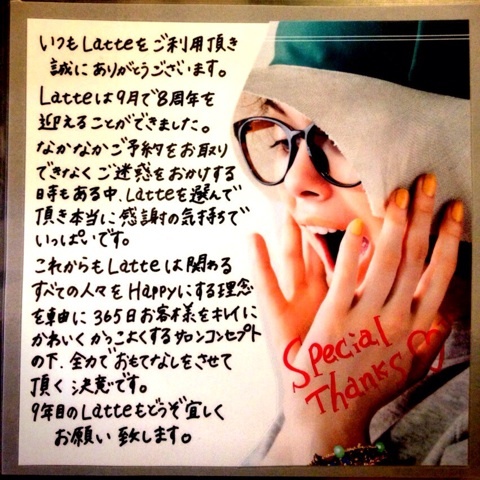 いつもLatteをご利用頂き
誠にありがとうございます。
Latteは9月で8周年を
迎えることができました。
なかなかご予約をお取り
できなくご迷惑をおかけする
日時もある中、Latteを選んで
頂き本当に感謝の気持ちで
いっぱいです。
これからもLatteは関わる
すべての人々をHappyにする理念
を軸に365日お客様をキレイに
かわいくかっこよくするサロンコンセプト
の下、全力でおもてなしをさせて
頂く決意です。
9年目のLatteもどうぞ宜しく
お願い致します。
Special
Thanks♡